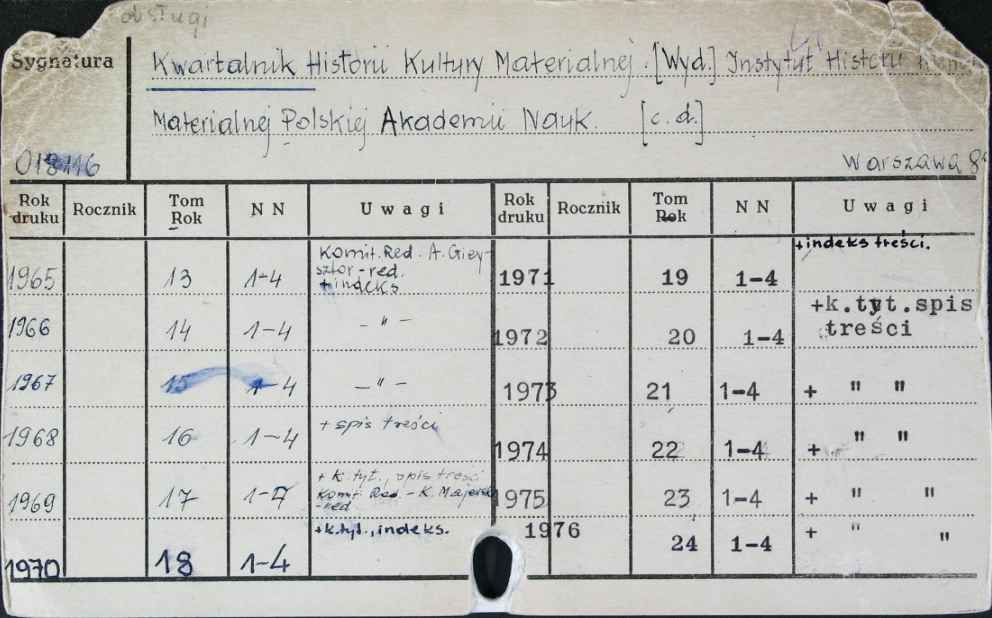 obsługi
Sygnatura
Kwartalnik Historii Kultury Materialnej. [Wyd.] Instytut Historii
Materialnej Polskiej Akademii Nauk. [c.d.]
Warszawa 8°
Rok druku Rocznik Tom Rok NN Uwagi Rok druku Rocznik Tom Rok NN Uwagi
1965 13 1-4 Komit. Red. A. Giey-
sztor - red.
+ indeks
1966 14 1-4 - " -
1967 15 1-4 - " -
1968 16 1-4 + spis treści
1969 17 1-4 + k. tyt., spis treści
Komit. Red. - K. Majewski
-red
1970 18 1-4 +k.tyt., indeks.
+indeks treści.
1971 19 1-4
1972 20 1-4 +k.tyt.spis
treści
1973 21 1-4 + " "
1974 22 1-4 + " "
1975 23 1-4 + " "
1976 24 1-4 + " "